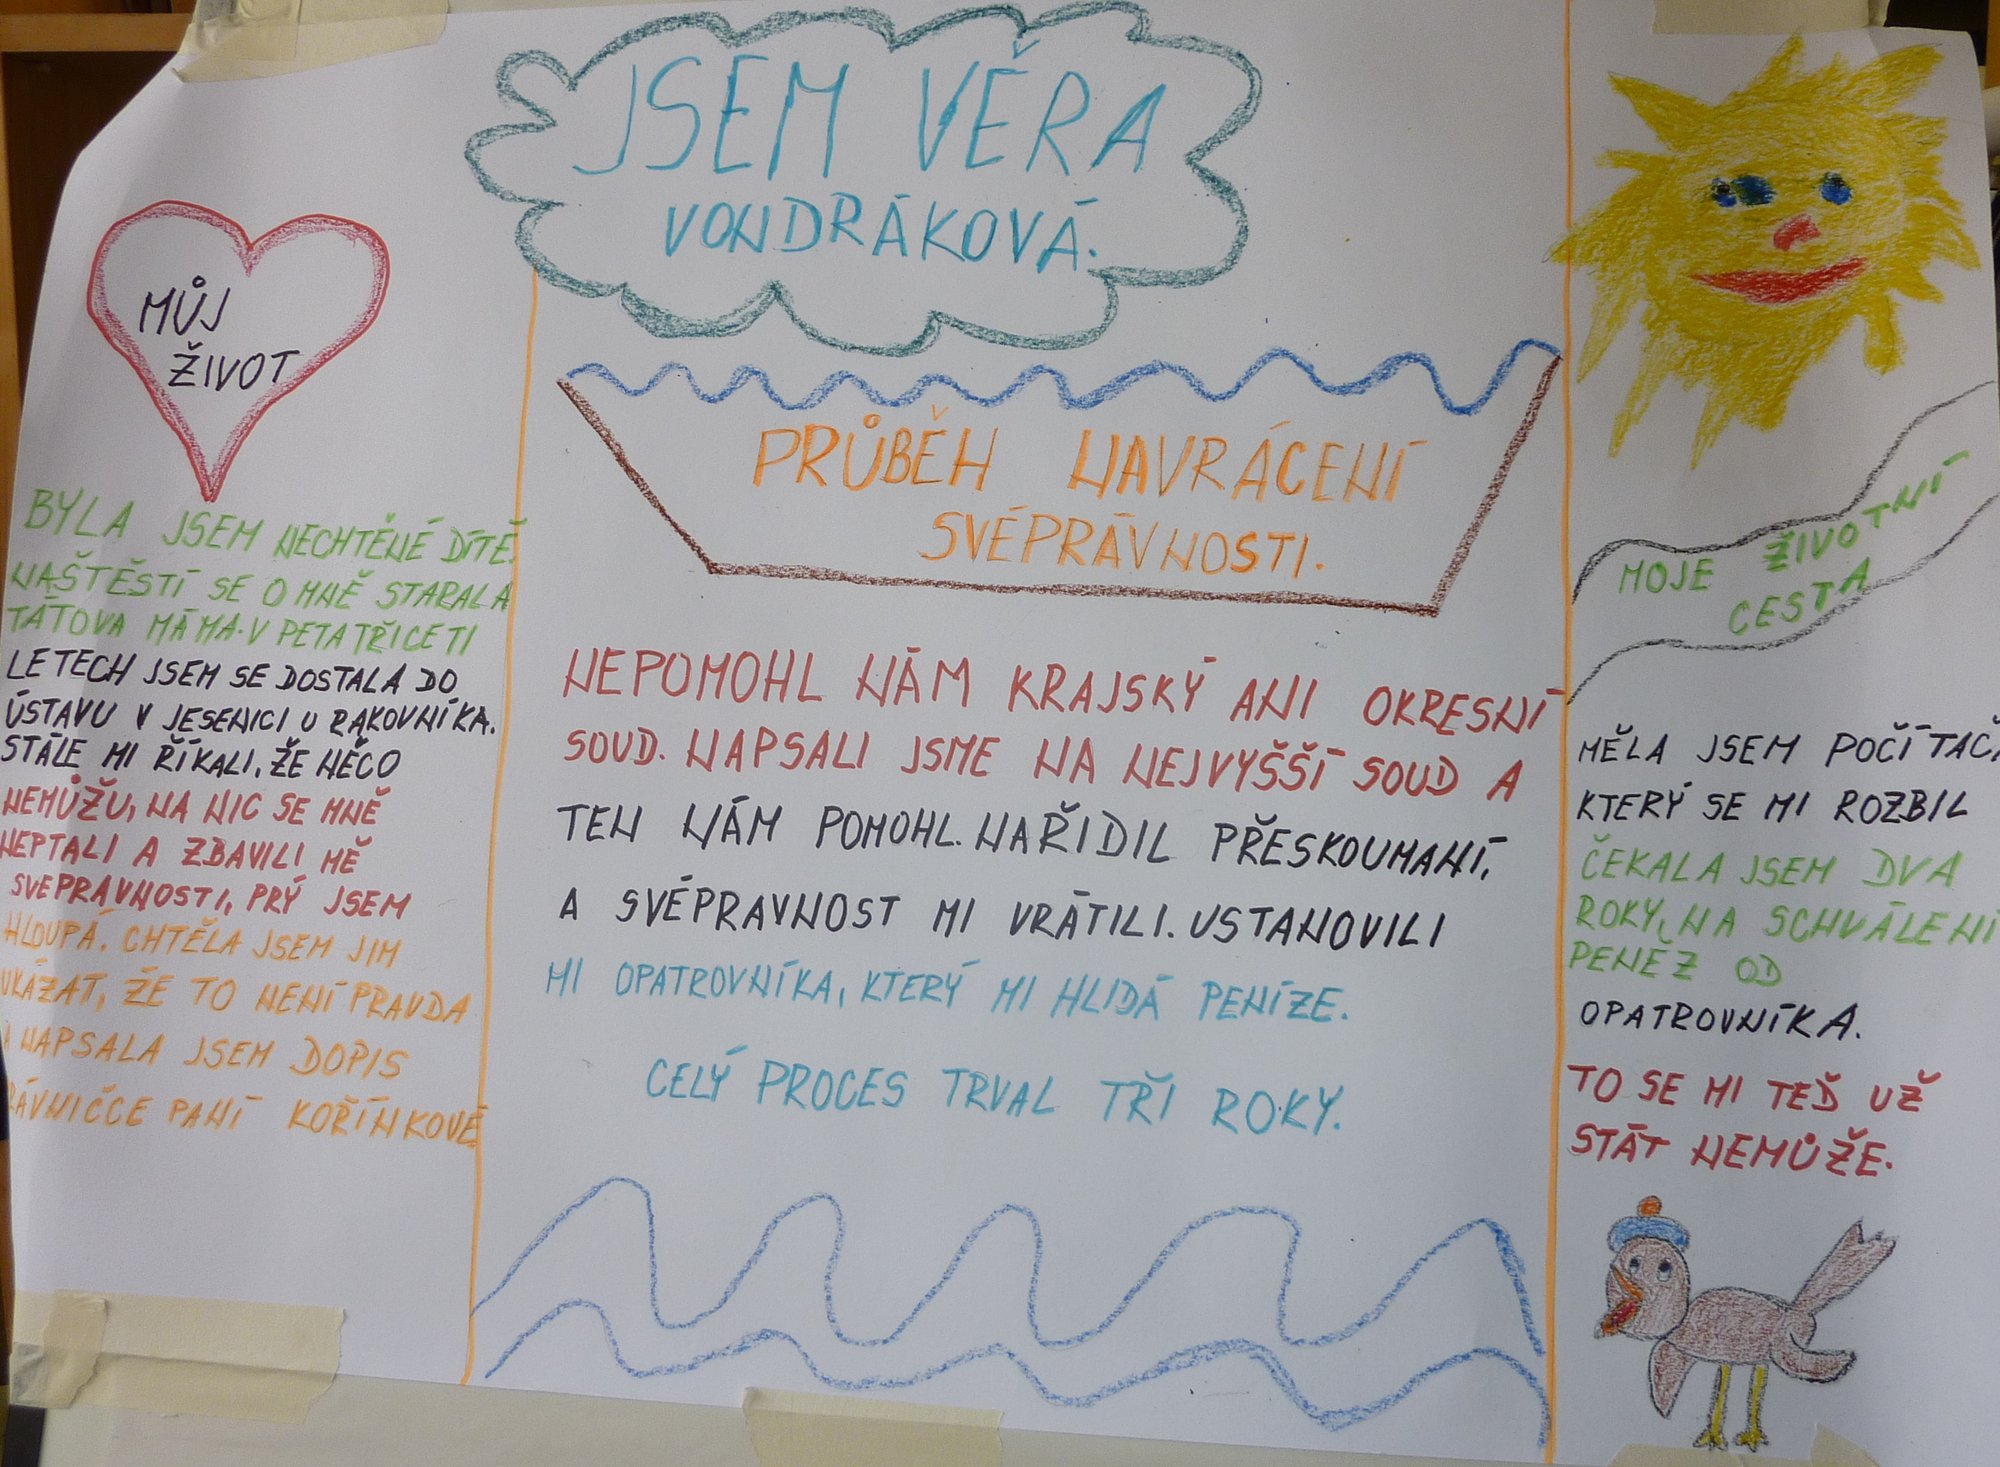 JSEM VĚRA
VONDRÁKOVÁ.
MŮJ
ŽIVOT
BYLA JSEM NECHTĚNÉ DÍTĚ.
NAŠTĚSTÍ SE O MNĚ STARALA
TÁTOVA MÁMA. V PETATŘICETI
LETECH JSEM SE DOSTALA DO
ÚSTAVU V JESENICI U RAKOVNÍKA.
STÁLE MI ŘÍKALI, ŽE NĚCO
NEMŮŽU, NA NIC SE MNĚ
NEPTALI A ZBAVILI MĚ
SVEPRÁVNOSTI, PRÝ JSEM
HLOUPÁ. CHTĚLA JSEM JIM
UKÁZAT, ŽE TO NENÍ PRAVDA
A NAPSALA JSEM DOPIS
RÁVNIČCE PANÍ KOŘÍNKOVÉ
PRŮBĚH NAVRÁCENÍ
SVÉPRÁVNOSTI.
NEPOMOHL NÁM KRAJSKÝ ANI OKRESNÍ
SOUD. NAPSALI JSME NA NEJVYŠŠÍ SOUD A
TEN NÁM POMOHL. NAŘIDIL PŘESKOUMANÍ,
A SVÉPRAVNOST MI VRÁTILI. USTANOVILI
MI OPATROVNÍKA, KTERÝ MI HLIDÁ PENÍZE.
CELÝ PROCES TRVAL TŘI ROKY.
MOJE ŽIVOTNÍ
CESTA
MĚLA JSEM POČÍTAČ,
KTERÝ SE MI ROZBIL
ČEKALA JSEM DVA
ROKY, NA SCHVÁLENÍ
PENĚZ OD
OPATROVNÍKA.
TO SE MI TEĎ UŽ
STÁT NEMŮŽE.